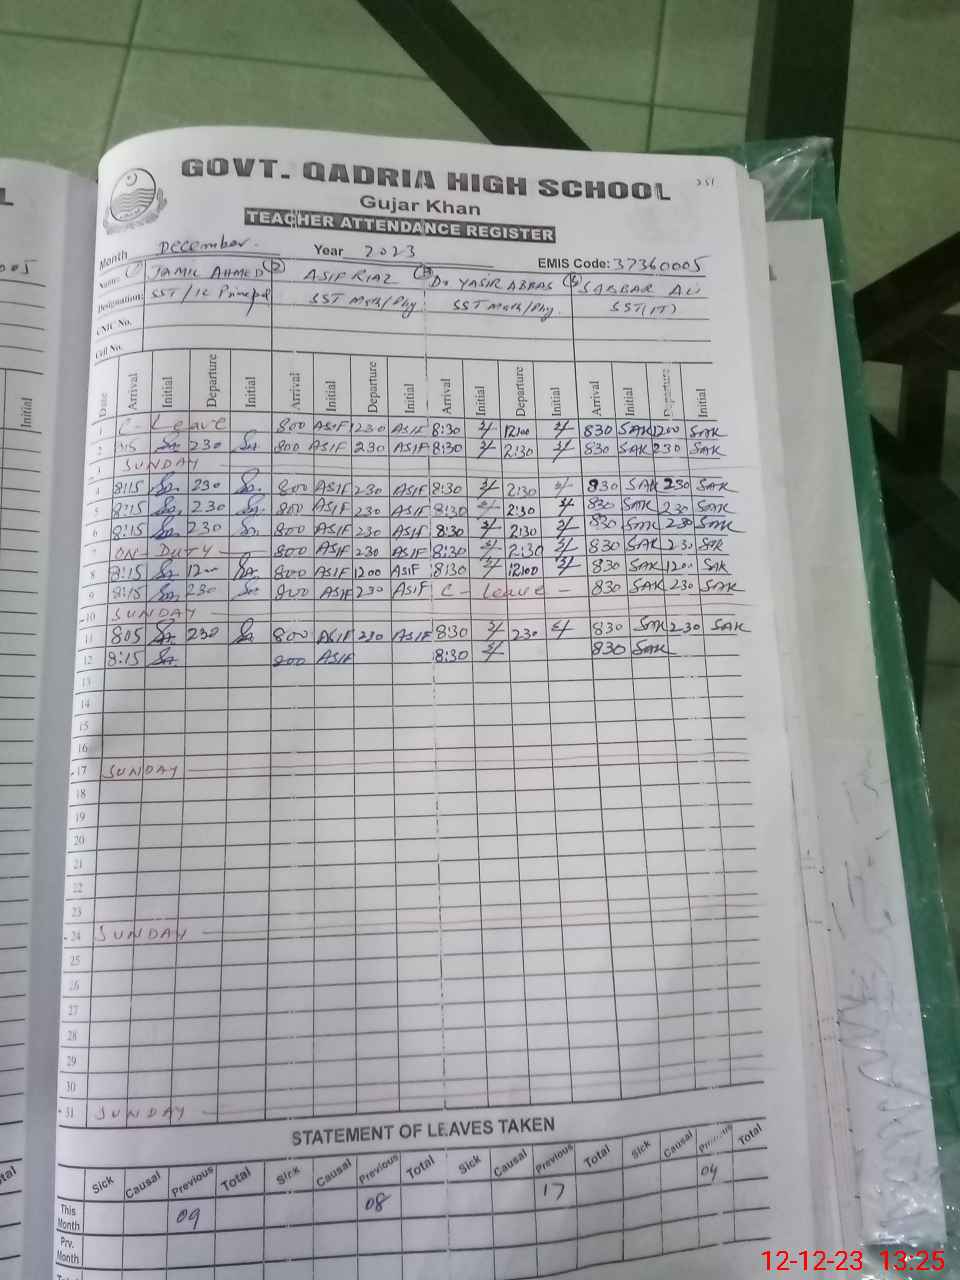 GOVT. QADRIA HIGH SCHOOL
Gujar Khan
TEACHER ATTENDANCE REGISTER
Month December. Year 2023 EMIS Code: 37360005
Name: (1) JAMIL AHMED (2) ASIF RIAZ (3) Dr YASIR ABBAS (4) SABBAR ALI
Designation: SST/IC Principal SST Math/Phy SST Math/Phy. SST(IT)
CNIC No.
Cell No.
Date Arrival Initial Departure Initial Arrival Initial Departure Initial Arrival Initial Departure Initial Arrival Initial Departure Initial
1 C- Leave 800 ASIF 1230 ASIF 8:30 12:00 830 SAK 1200 SAK
2 230 800 ASIF 230 ASIF 8:30 2:30 830 SAK 230 SAK
3 SUNDAY
4 8:15 230 800 ASIF 230 ASIF 8:30 2:30 830 SAK 230 SAK
5 8:15 230 800 ASIF 230 ASIF 8:30 2:30 830 SAK 230 SAK
6 8:15 230 800 ASIF 230 ASIF 8:30 2:30 830 SAK 230 SAK
7 ON-DUTY 800 ASIF 230 ASIF 8:30 2:30 830 SAK 230 SAK
8 8:15 1200 800 ASIF 1200 ASIF 8:30 12:00 830 SAK 1200 SAK
9 8:15 230 800 ASIF 230 ASIF C- Leave - 830 SAK 230 SAK
10 SUNDAY
11 805 230 800 ASIF 230 ASIF 830 230 830 SAK 230 SAK
12 8:15 800 ASIF 8:30 830 SAK
13
14
15
16
17 SUNDAY
18
19
20
21
22
23
24 SUNDAY
25
26
27
28
29
30
31 SUNDAY
STATEMENT OF LEAVES TAKEN
Sick Causal Previous Total Sick Causal Previous Total Sick Causal Previous Total Sick Causal Previous Total
This Month 09 08 17 04
Prv. Month
12-12-23 13:25